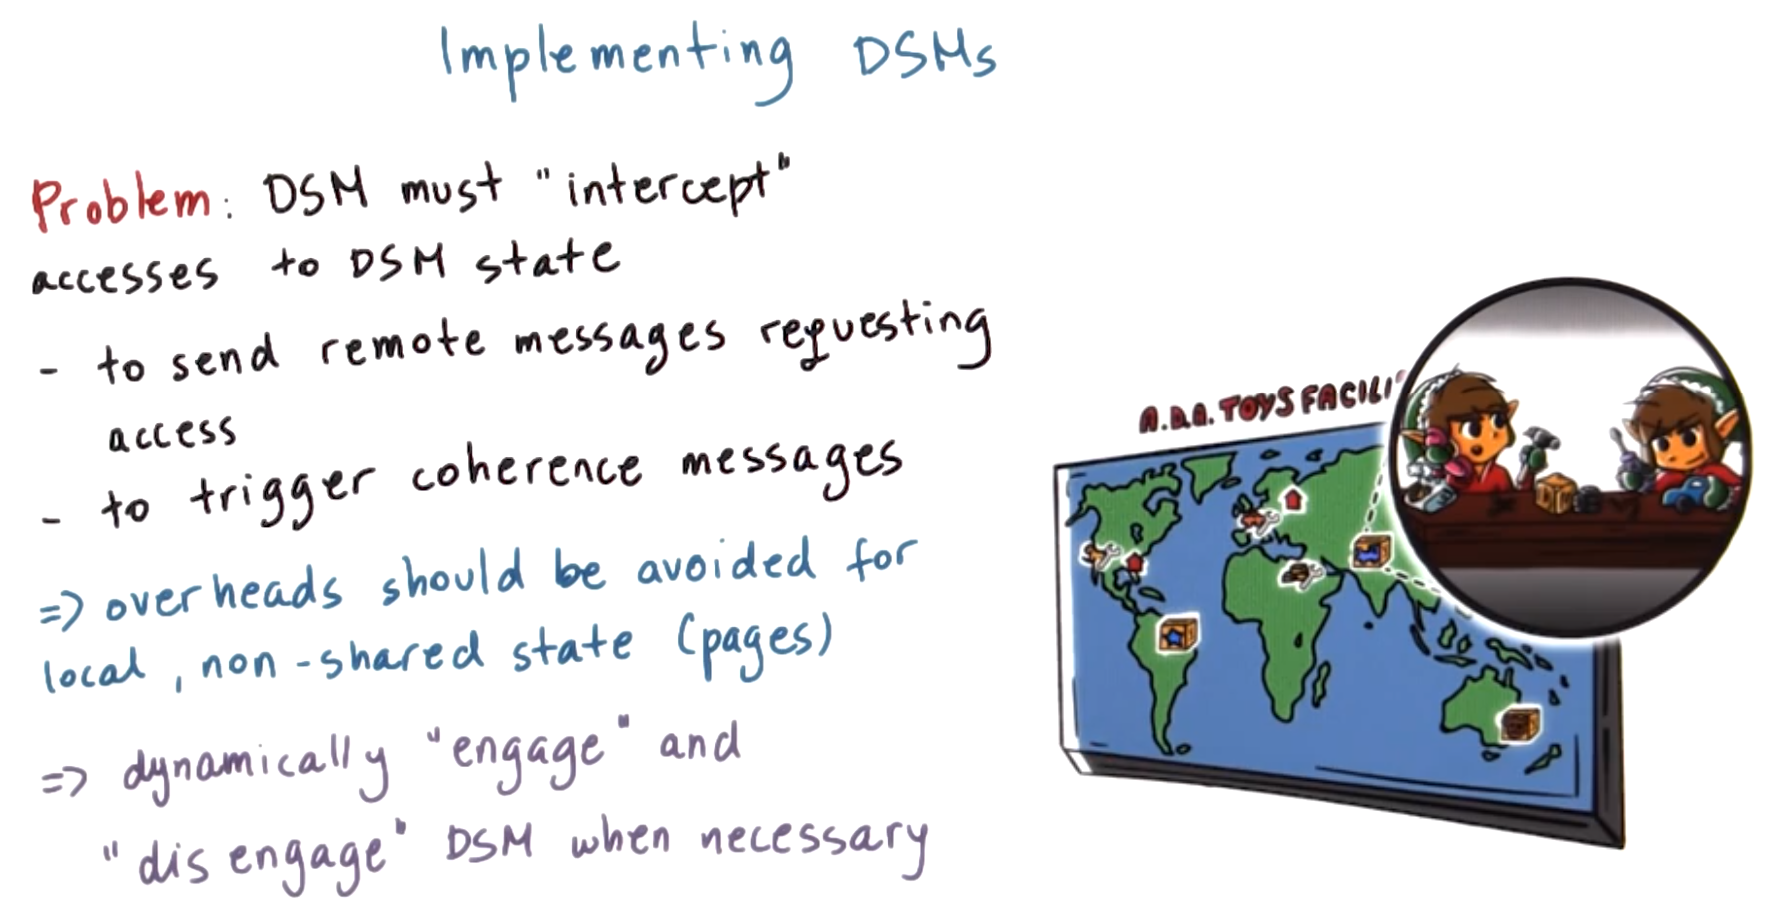 Implementing DSMs
Problem: DSM must "intercept"
accesses to DSM state
- to send remote messages requesting
access
- to trigger coherence messages
=> overheads should be avoided for
local, non-shared state (pages)
=> dynamically "engage" and
"disengage" DSM when necessary
A.D.A. TOYS FACILI